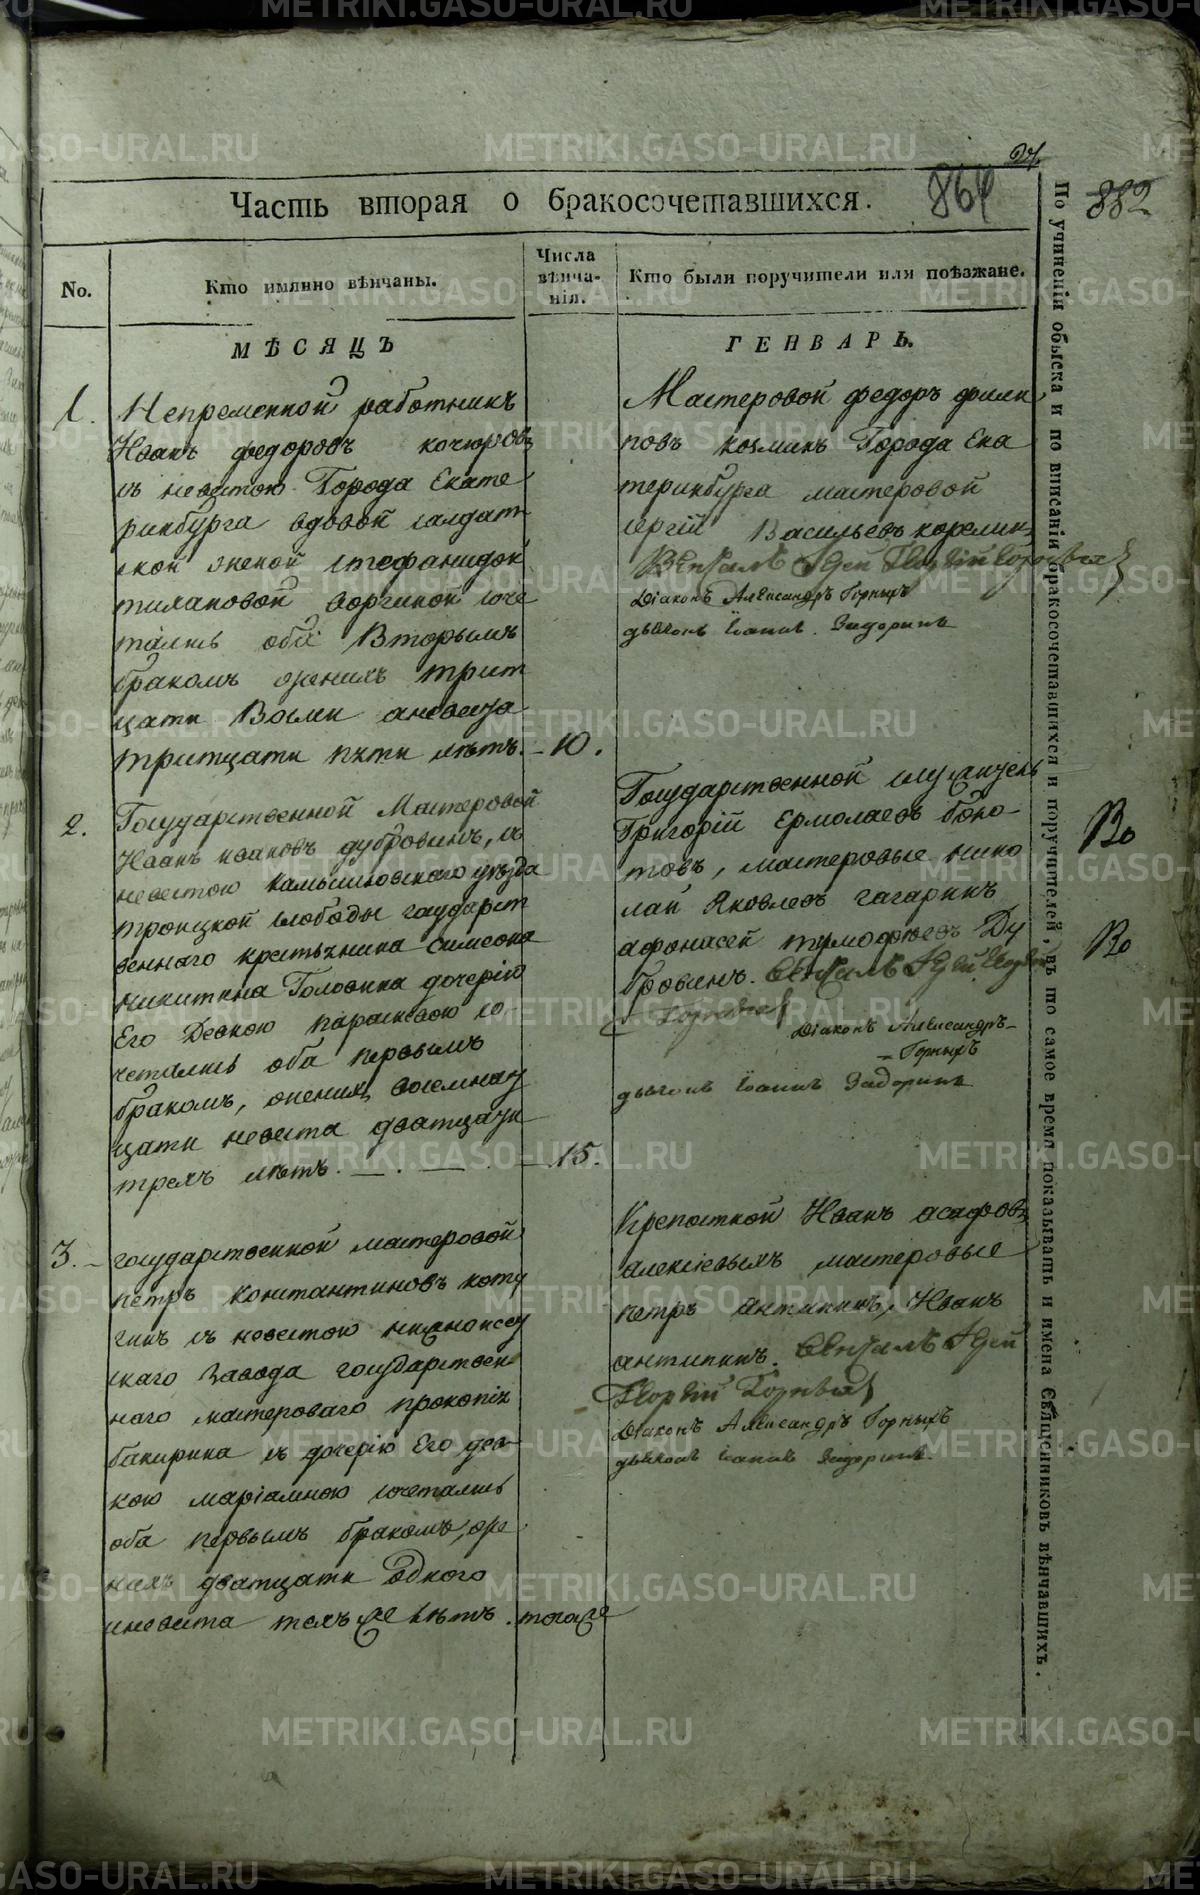 24
Часть вторая о бракосочетавшихся.
864
882
No.
Кто имянно вѣнчаны.
Числа вѣнча-
нія.
Кто были поручители или поѣзжане.
МѢСЯЦЪ
ГЕНВАРЬ.
1.
Непременной работникъ
Иванъ федоровъ кочюровъ
съ невестою Города Екате
ринбурга вдовой салдат
ской женой стефанидой
оба Вторымъ
бракомъ женихъ трит
цати Восми аневеста
тритцати пяти летъ. – 10.
Мастеровой федоръ фили
повъ козминъ Города Ека
теринбурга мастеровой
сергій Васильевъ корелин
Діаконъ Александръ Горныхъ
дьячокъ Іоаннъ Задоринъ
2.
Государственной Мастеровой
Иванъ ивановъ дубровинъ, съ
невестою камышловскаго уезда
троицкой слободы гаударст
веннаго крестьянина Симеона
никитина Головина дочерію
Его Девкою параскевою со-
четались оба первымъ
бракомъ, жених восемнад
цати невеста дватцати
трехъ летъ. — . — – 15.
Государственной
Григорій Ермолаевъ боло-
товъ, мастеровые нико
лай Яковлевъ гагаринъ
афонасей тимофеевъ Ду
бровинъ.
Діаконъ Александръ
Горныхъ
дьячокъ Іоаннъ Задоринъ
3. –
государственной мастеровой
петръ константиновъ коту
гинъ съ невестою нижноисет
скаго завода государствен
наго мастероваго прокопія
бакирина съ дочерію Его дев
кою маріамною сочетались
оба первымъ бракомъ, же
нихъ дватцати одного
иневеста техъ же летъ. тогоже
Крепостной Иванъ асафовъ
алексіевыхъ мастеровые
петръ антипинъ, Иванъ
антипинъ.
Георгій Горныхъ
Діаконъ Александръ Горныхъ
дьячокъ Іоаннъ Задоринъ.
По учиненіи обыска и по вписаніи бракосочетавшихся и поручителей, въ то самое время показывать и имена Священниковъ вѣнчавшихъ.
METRIKI.GASO-URAL.RU